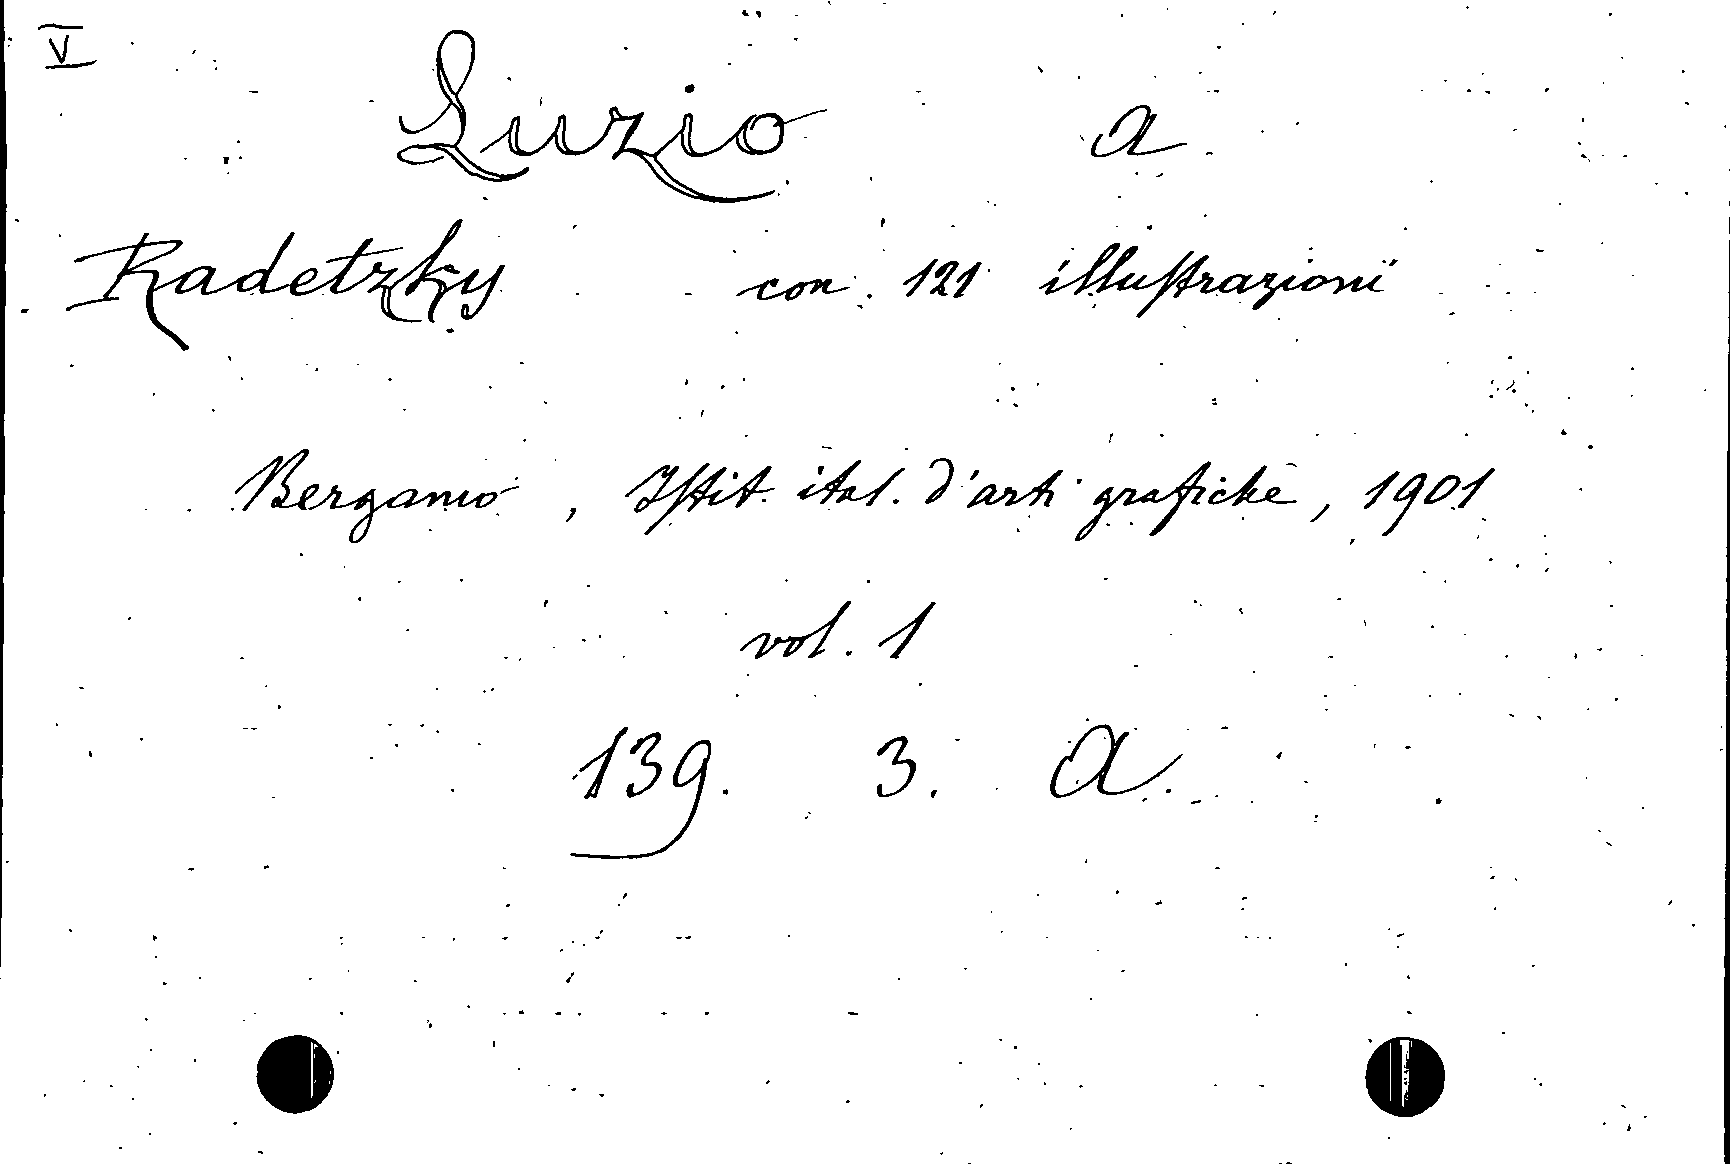 V
Luzio A.
Radetzky con 121 illustrazioni
Bergamo, Istit. ital. d'arti grafiche, 1901
vol. 1
139. 3. A.